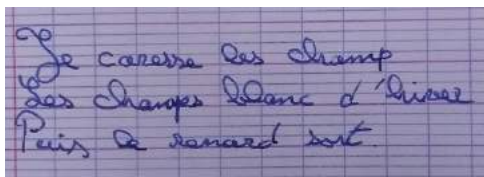 Je caresse les champ
Les champs blanc d'hiver
Puis le renard sort.